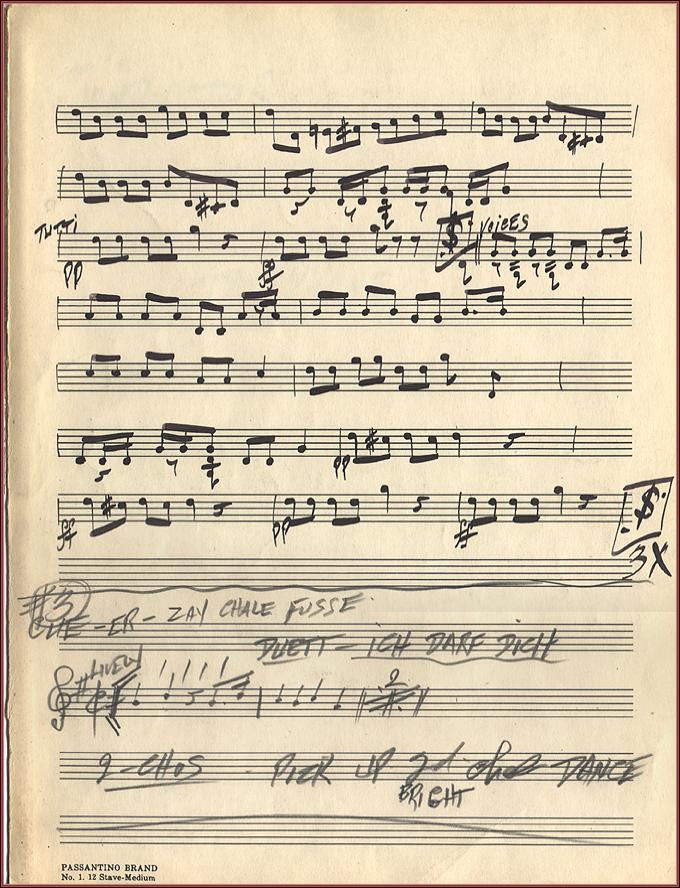 TUTTI
VOICES
pp ff
pp
ff pp ff
3X
#3
CHE-ER-ZAY CHALE FUSSE
DUETT-ICH DARF DICH
LIVELY
2
2-CHOS PICK UP 2d DANCE
BRIGHT
PASSANTINO BRAND
No. 1. 12 Stave-Medium